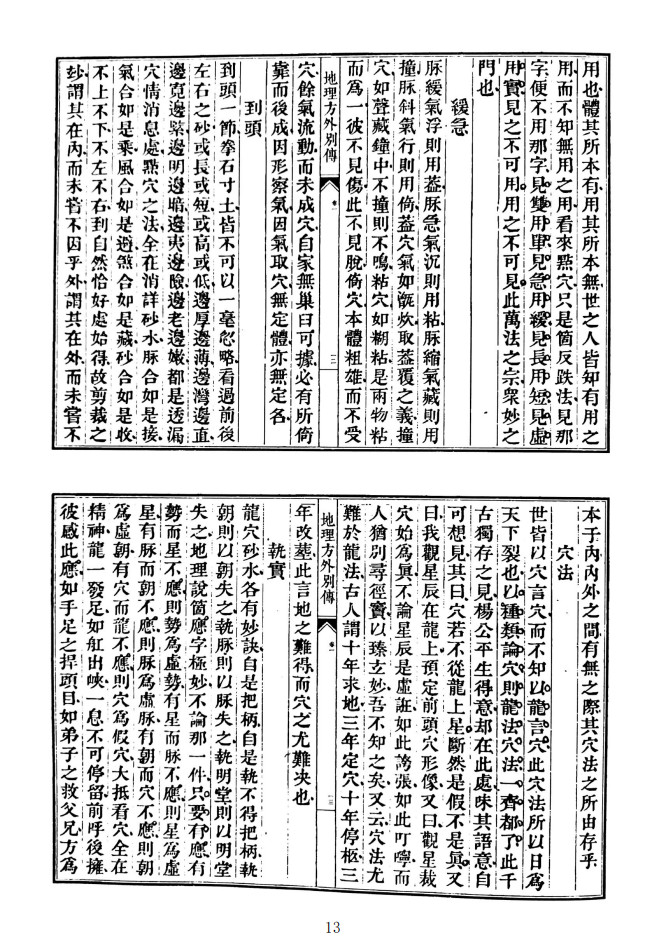 用也體其所本有用其所本無世之人皆知有用之
用而不知無用之用看來㸃穴只是箇反跌法見那
字便不用那字見雙用單見急用緩見長用短見虛
用實見之不可用用之不可見此萬法之宗衆妙之
門也
緩急
脉緩氣浮則用葢脉急氣沉則用粘脉縮氣藏則用
撞脉斜氣行則用倚葢穴氣如甑炊取葢覆之義撞
穴如聲藏鐘中不撞則不鳴粘穴如糊粘是兩物粘
而爲一彼不見傷此不見脫倚穴本體粗雄而不受
地理方外別傳
卷一
三
穴餘氣流動而未成穴自家無巢臼可據必有所倚
靠而後成因形察氣因氣取穴無定體亦無定名
到頭
到頭一節拳石寸土皆不可以一毫忽略看過前後
左右之砂或長或短或高或低邊厚邊薄邊灣邊直
邊寬邊緊邊明邊暗邊夷邊險邊老邊嫩都是透漏
穴情消息處㸃穴之法全在消詳砂水脉合如是接
氣合如是乘風合如是避煞合如是藏砂合如是收
不上不下不左不右到自然恰好處始得故剪裁之
玅謂其在內而未嘗不因乎外謂其在外而未嘗不
本于內內外之間有無之際其穴法之所由存乎
穴法
世皆以穴言穴而不知以龍言穴此穴法所以日爲
天下裂也以種類論穴則龍法穴法一齊都了此千
古獨存之見楊公平生得意却在此處味其語意自
可想見其曰穴若不從龍上星斷然是假不是眞又
曰我觀星辰在龍上預定前頭穴形像又曰觀星裁
穴始爲眞不論星辰是虛誑如此誇張如此叮嚀而
人猶別尋徑竇以臻玄妙吾不知之矣又云穴法尤
難於龍法古人謂十年求地三年定穴十年停柩三
地理方外別傳
卷一
年改墓此言地之難得而穴之尤難夬也
執實
龍穴砂水各有妙訣自是把柄自是執不得把柄執
朝則以朝失之執脉則以脉失之執明堂則以明堂
失之地理說箇應字極妙不論那一件只要有應有
勢而星不應則勢爲虛勢有星而脉不應則星爲虛
星有脉而朝不應則脉爲虛脉有朝而穴不應則朝
爲虛朝有穴而龍不應則穴爲假穴大抵看穴全在
精神龍一發足如舡出峽一息不可停留前呼後擁
彼感此應如手足之捍頭目如弟子之救父兄方爲
13